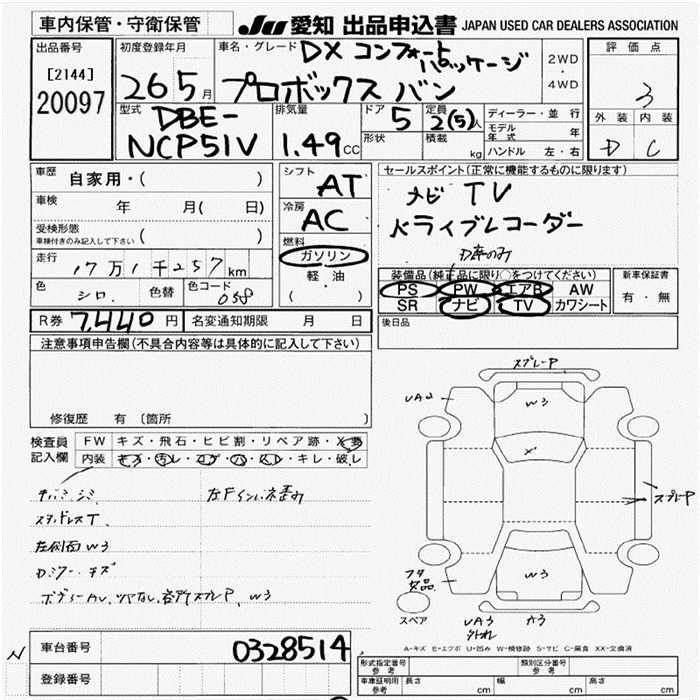 車内保管・守衛保管
JU 愛知 出品申込書 JAPAN USED CAR DEALERS ASSOCIATION
出品番号
[2144]
20097
初度登録年月
26 5月
車名・グレード DX コンフォートパッケージ
プロボックス バン
2WD
・
4WD
評価点
3
外装 内装
D C
型式 DBE-
NCP51V
排気量
1.49cc
ドア 5
形状
定員 2(5)人
積載 kg
ディーラー・並行
モデル年式 年
ハンドル 左・右
車歴 自家用・( )
車検 年 月( 日)
受検形態
車検付きのみ記入して下さい ( )
走行 17万1千257km
色 シロ. 色替 色コード 058
シフト AT
冷房 AC
燃料
ガソリン
軽・油
( )
セールスポイント(正常に機能するものに限ります)
ナビ TV
ドライブレコーダー
装備品(純正品に限り○をつけてください)
PS PW エアB AW
SR ナビ TV カワシート
新車保証書
有・無
後日品
R券 7,440円 名変通知期限 月 日
注意事項申告欄(不具合内容等は具体的に記入して下さい)
修復歴 有 (箇所 )
検査員
記入欄
FW キズ・飛石・ヒビ割・リペア跡・X要
内装 キズ・汚レ・コゲ・穴・スレ・キレ・破レ
スタッドレスT
左側面W3
スプレーP
UA2
W3
X
スプレーP
W3
フタ欠品
スペア
UA3
A3
A-キズ E-エクボ U-凹み W-補修跡 S-サビ C-腐食 XX-交換済
車台番号 0328514
登録番号
形式指定番号
参考
類別区分番号
参考
車庫証明用
参考
長さ cm 幅 cm 高さ cm